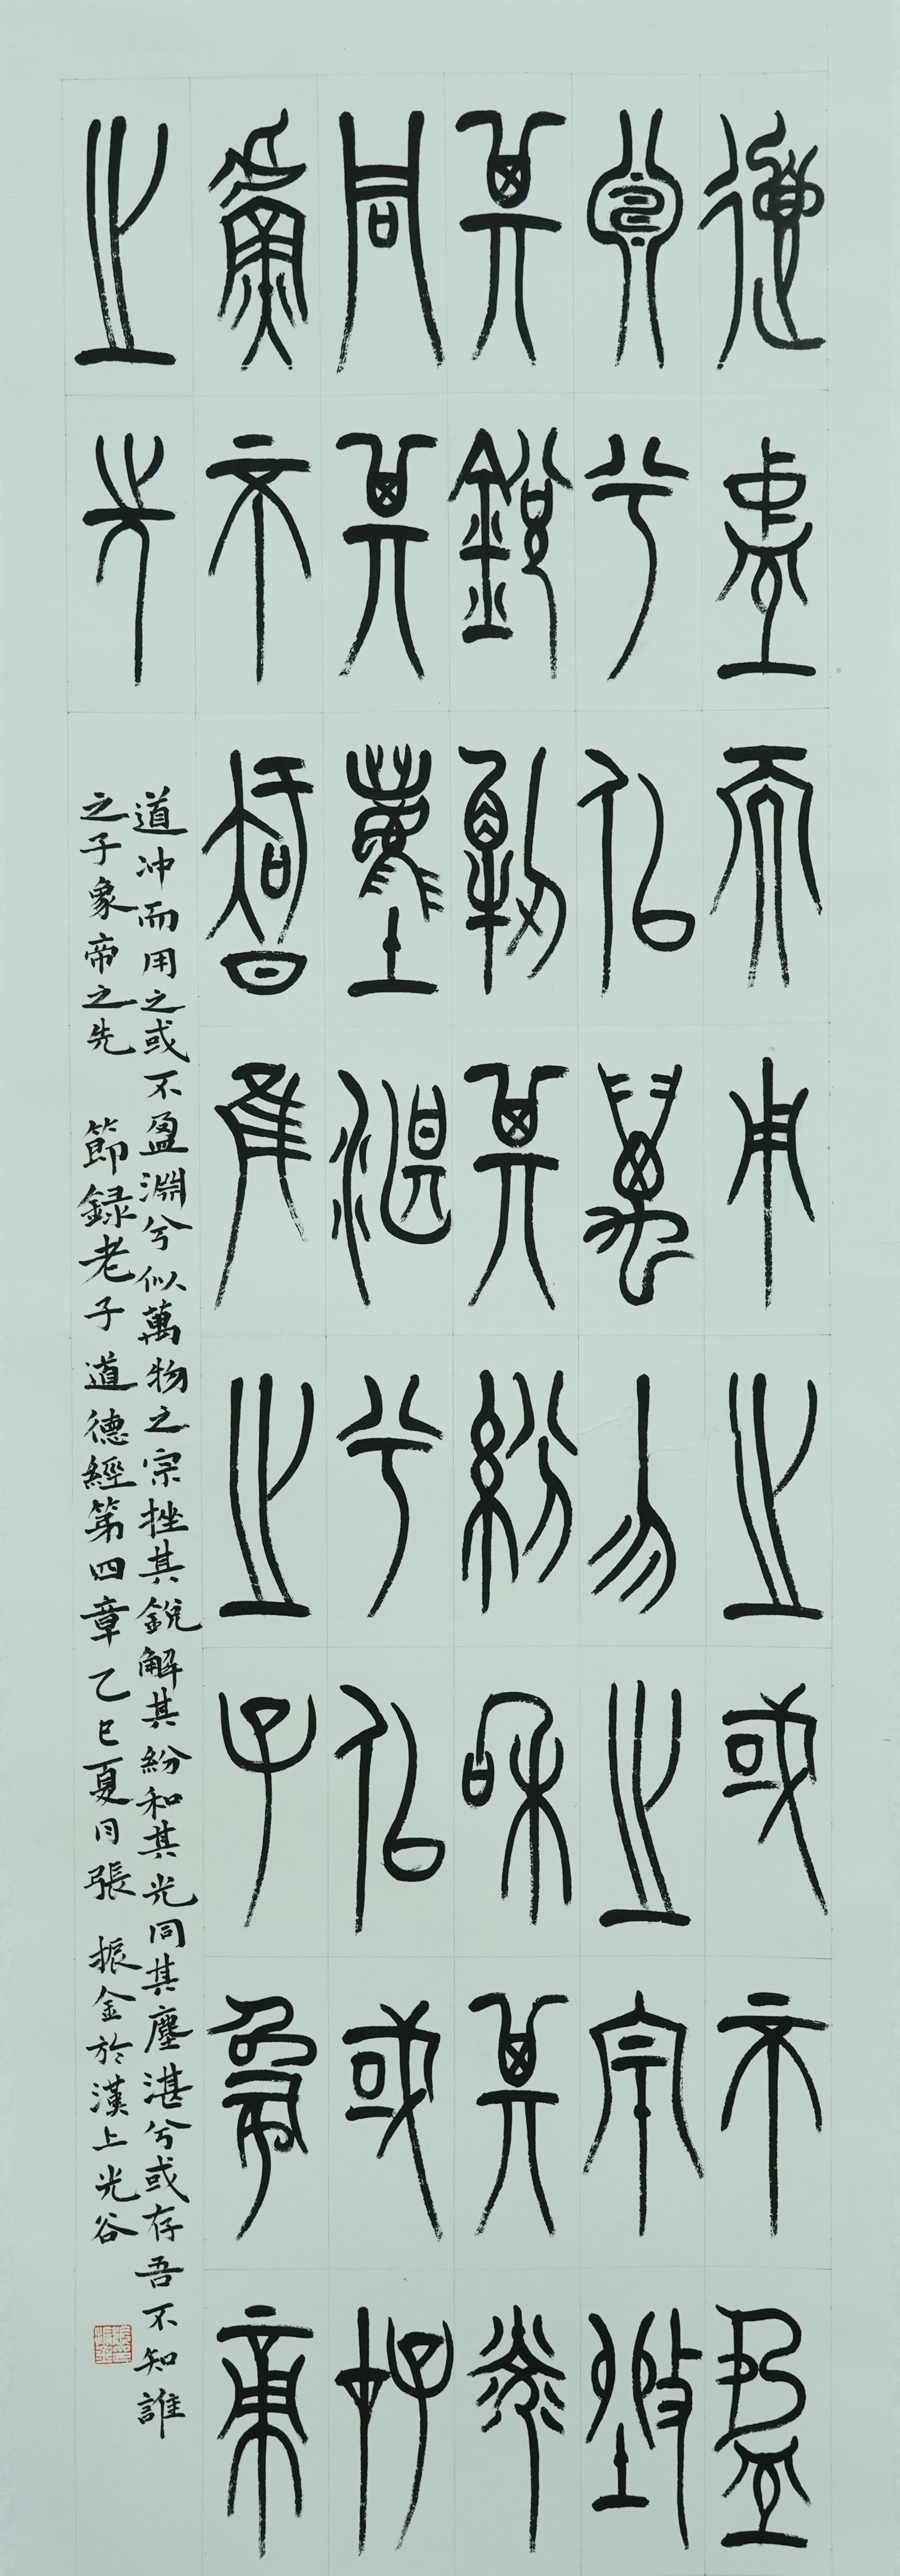 道盅而用之或不盈
淵兮佀萬勿之宗挫
其銳解其紛和其光
同其塵湛兮佀或存
吾不智隹之子象帝
之先
道冲而用之或不盈淵兮似萬物之宗挫其銳解其紛和其光同其塵湛兮或存吾不知誰
之子象帝之先 節録老子道德經第四章乙巳夏月張振金於漢上光谷